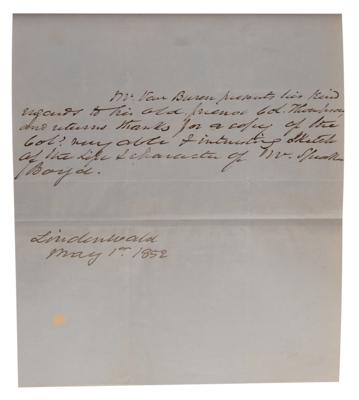 Mr. Van Buren presents his kind
regards to his old friend Col. Thompson
and returns thanks for a copy of the
Col's. very able & interesting sketch
of the Life & character of Mr. Speaker
Boyd.
Lindenwald
May 1st. 1852